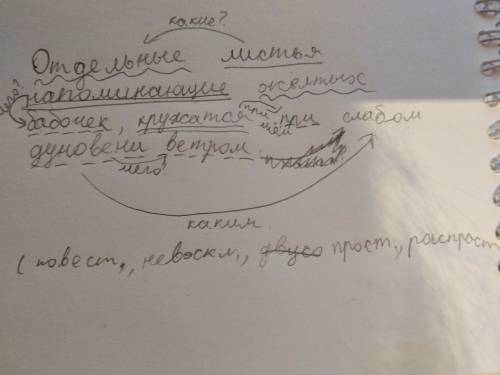 какие?
Отдельные листья
напоминающие жёлтых
бабочек, кружатся при чём при слабом
дуновени ветром.
чего?
каким
(повест., невоскл., двусо прост., распрост